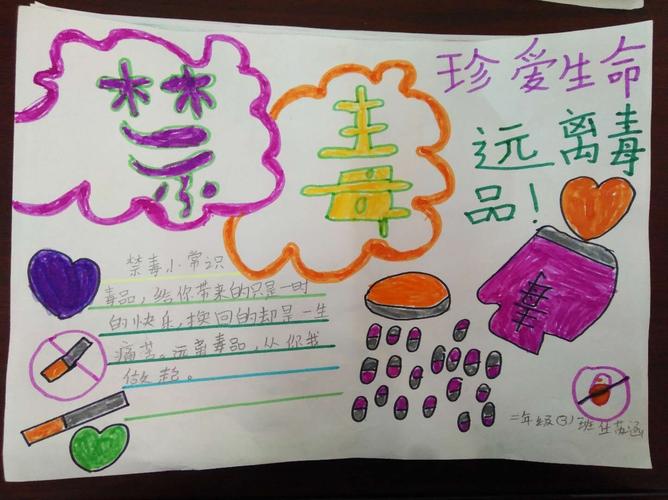 禁毒
珍爱生命
远离毒
品!
禁毒小常识
毒品，给你带来的只是一时
的快乐，换回的却是一生
痛苦。远离毒品，从你我
做起。
毒
二年级(3)班任苏涵